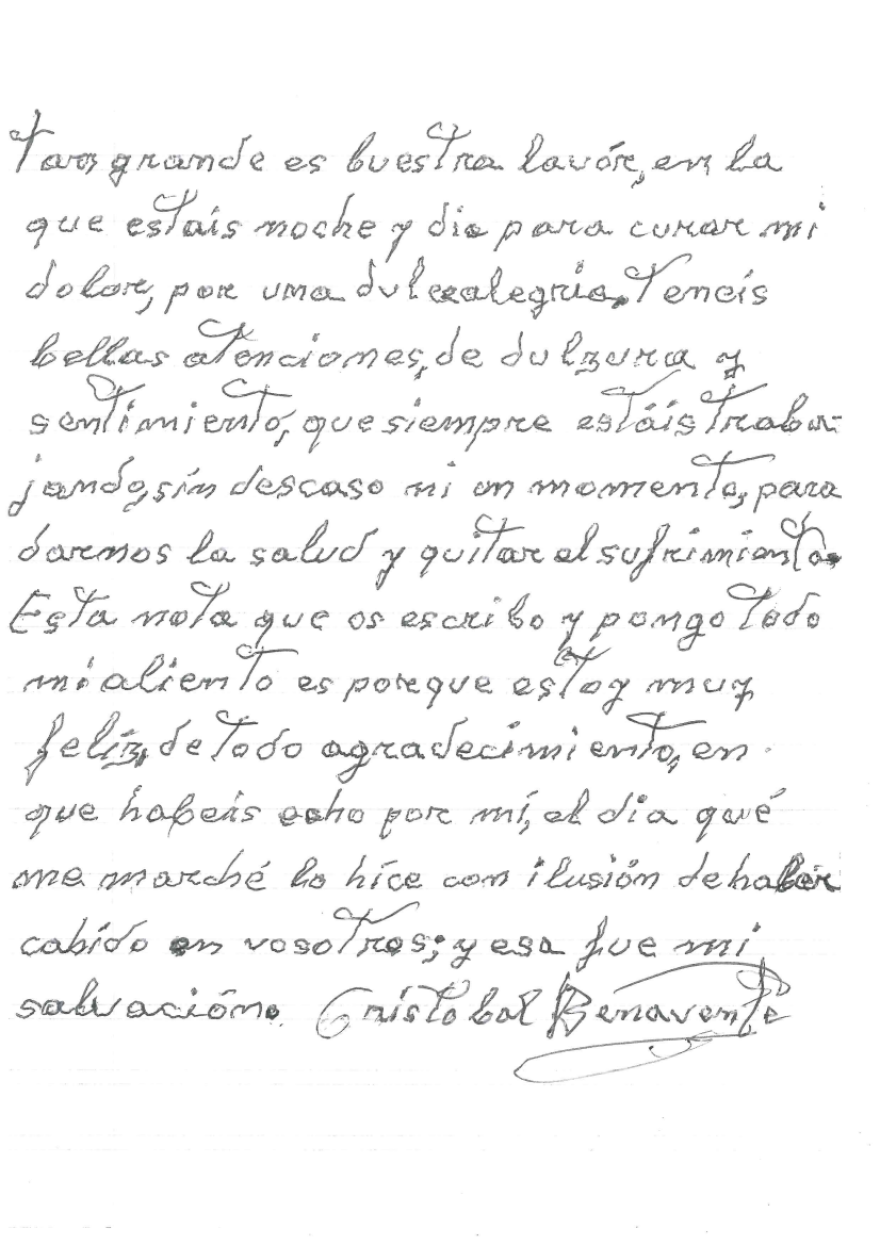 Tan grande es buestra lavór, en la
que estais noche y dia para curar mi
dolor, por una dulce alegria. Teneis
bellas atenciones, de dulzura y
sentimiento, que siempre estáis traba-
jando, sín descaso ni un momento, para
darnos la salud y quitar el sufrimiento.
Esta nota que os escribo y pongo todo
mi aliento es porque estoy muy
felíz, de todo agradecimiento, en
que habeis echo por mí, el dia qué
me marché lo híce con ilusión de haber
cabído en vosotros; y esa fue mi
salvación. Cristobal Benavente